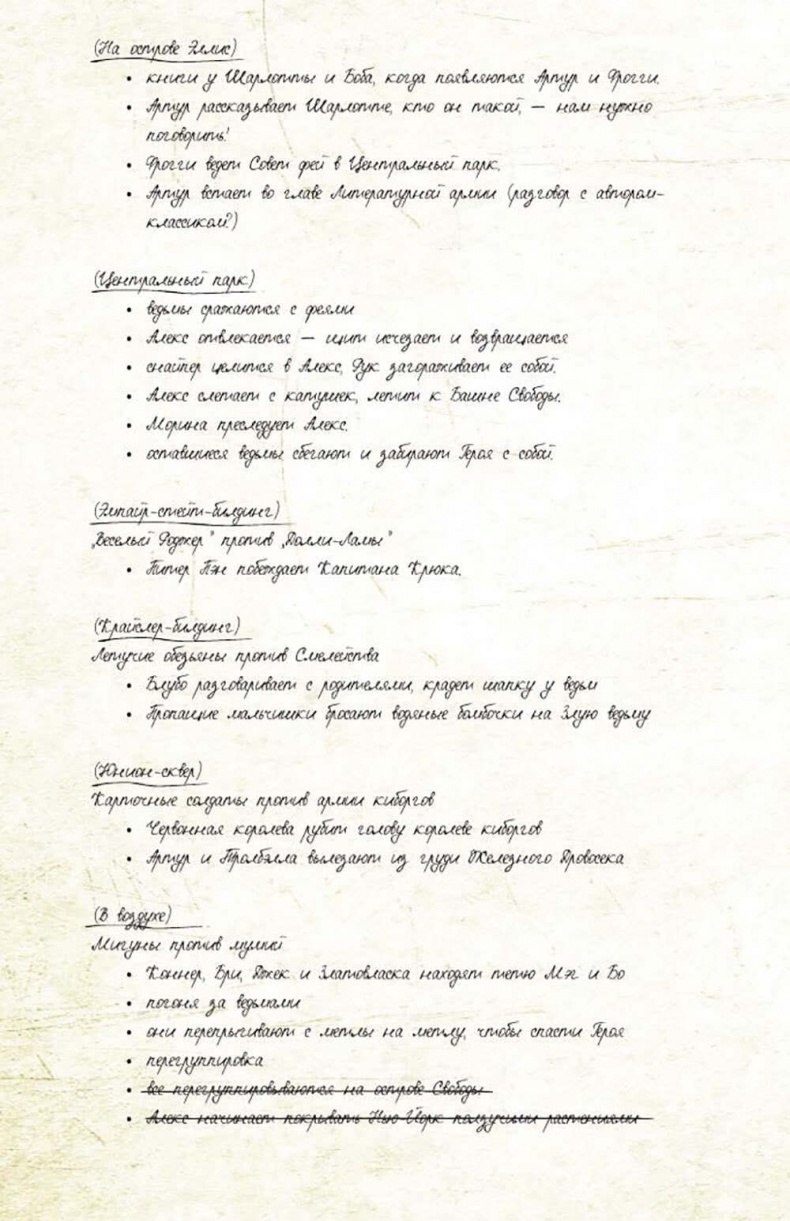 (На острове Эллис)
• книги у Шарлотты и Боба, когда появляются Артур и Фрогги.
• Артур рассказывает Шарлотте, кто он такой, — нам нужно
поговорить!
• Фрогги ведет Совет фей в Центральный парк.
• Артур встает во главе Литературной армии (разговор с автором-
классиком?)
(Центральный парк)
• ведьмы сражаются с феями
• Алекс отвлекается — щит исчезает и возвращается
• снайпер целится в Алекс, Рук загораживает ее собой.
• Алекс слетает с катушек, летит к Башне Свободы.
• Морина преследует Алекс.
• оставшиеся ведьмы сбегают и забирают Героя с собой.
(Эмпайр-стейт-билдинг)
„Веселый Роджер" против „Долли-Ламы"
• Питер Пэн побеждает Капитана Крюка.
(Крайслер-билдинг)
Летучие обезьяны против Смелейства
• Блубо разговаривает с родителями, крадет шапку у ведьм
• Пропащие мальчишки бросают водяные бомбочки на Злую ведьму
(Юнион-сквер)
Карточные солдаты против армии киборгов
• Червонная королева рубит голову королеве киборгов
• Артур и Тролбэлла вылезают из груди Железного Дровосека
(В воздухе)
Мигуны против мумий
• Коннер, Бри, Джек и Златовласка находят тетю Мэг и Бо
• погоня за ведьмами
• они перепрыгивают с метлы на метлу, чтобы спасти Героя
• перегруппировка
• все перегруппировываются на острове Свободы
• Алекс начинает покрывать Нью-Йорк ползучими растениями